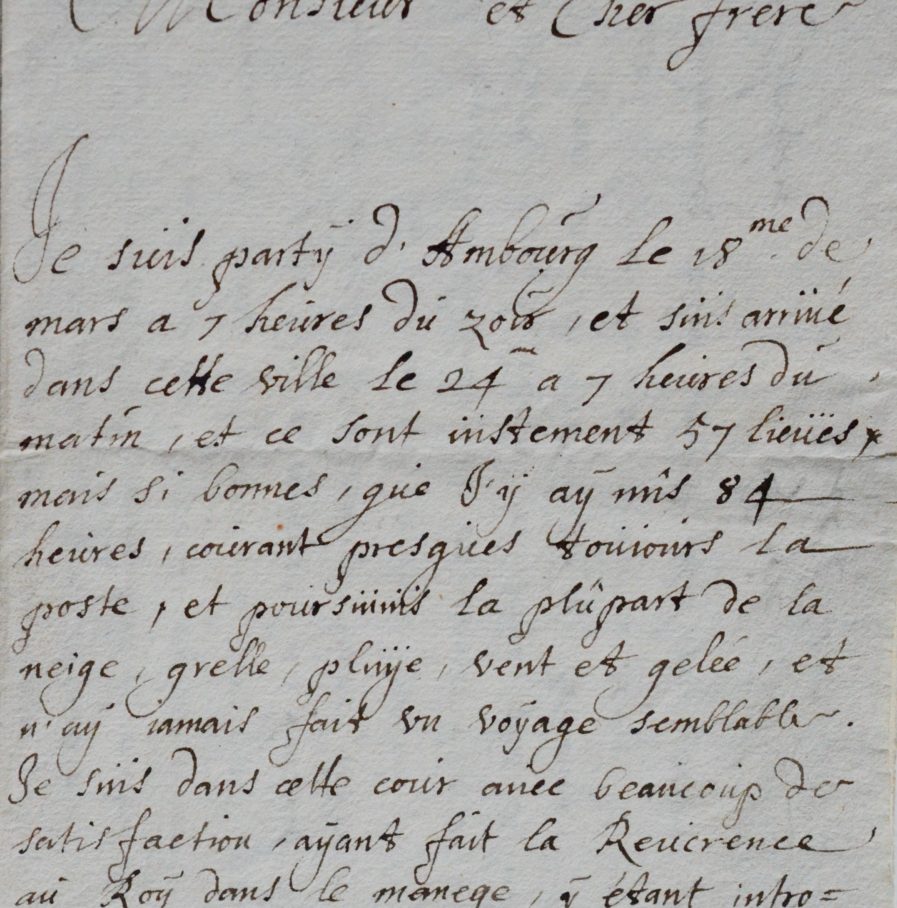 Monsieur et Cher frere
Je suis partÿ d'Ambourg le 18me de
mars a 7 heures du zoir, et suis arriué
dans cette ville le 24 a 7 heures du
matin, et ce sont iustement 57 lieües,
mais si bonnes, que J'ÿ aÿ mis 84
heures, courant presques touiours la
poste, et poursuiuis la plûpart de la
neige, grelle, pluÿe, vent et gelée, et
n'aÿ iamais fait vn voÿage semblable.
Je suis dans cette cour auec beaucoup de
satisfaction, aÿant fait la Reuerence
au Roÿ dans le manege, ÿ étant intro=